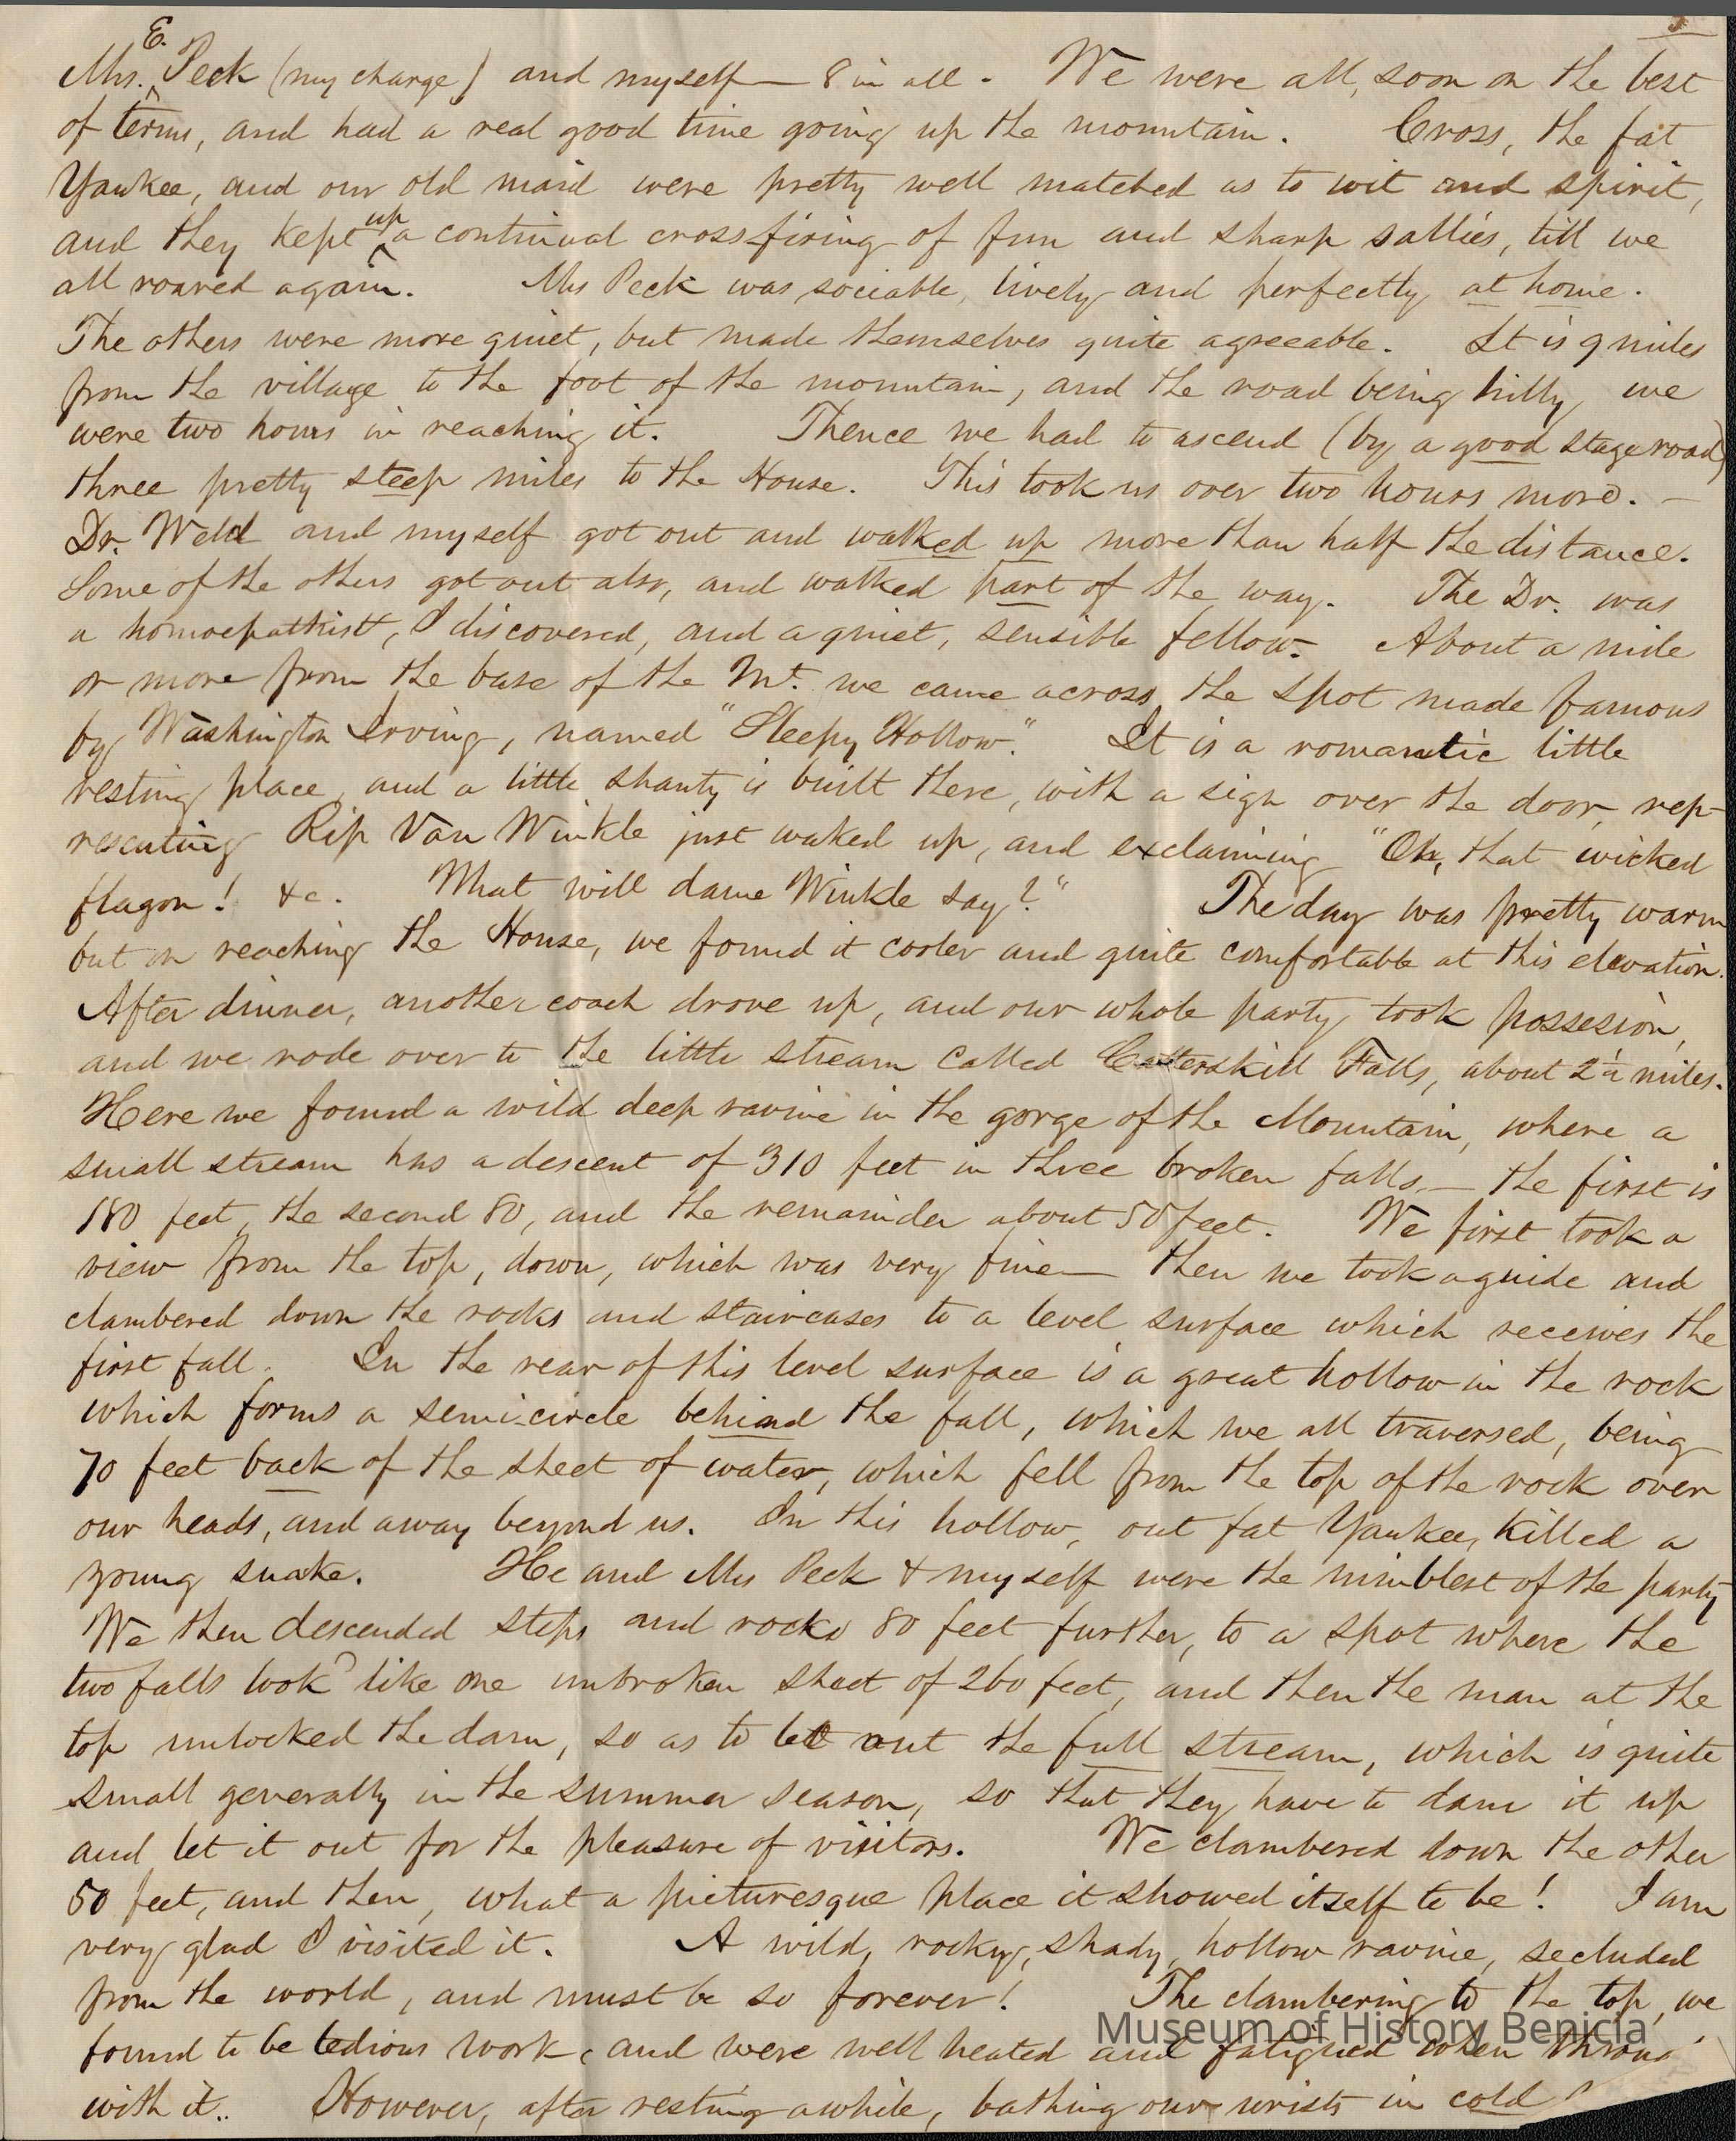 3
Mrs. E. Peck (my charge) and myself — 8 in all. We were all, soon on the best
of terms, and had a real good time going up the mountain. Cross, the fat
Yankee, and our old maid were pretty well matched as to wit and spirit,
and they kept up a continual cross-firing of fun and sharp sallies, till we
all roared again. Mrs Peck was sociable, lively and perfectly at home.
The others were more quiet, but made themselves quite agreeable. It is 9 miles
from the village to the foot of the mountain, and the road being hilly, we
were two hours in reaching it. Thence we had to ascend (by a good stage road)
three pretty steep miles to the House. This took us over two hours more. —
Dr. Weld and myself got out and walked up more than half the distance.
Some of the others got out also, and walked part of the way. The Dr. was
a homoepathist, I discovered, and a quiet, sensible fellow. About a mile
or more from the base of the Mt. we came across the spot made famous
by Washington Irving, named "Sleepy Hollow." It is a romantic little
resting place, and a little shanty is built there, with a sign over the door, rep-
resenting Rip Van Winkle just waked up, and exclaiming "Oh, that wicked
flagon! &c. What will dame Winkle say?" The day was pretty warm
but on reaching the House, we found it cooler and quite comfortable at this elevation.
After dinner, another coach drove up, and our whole party took possesion,
and we rode over to the little stream called Catterskill Falls, about 2½ miles.
Here we found a wild deep ravine in the gorge of the Mountain, where a
small stream has a descent of 310 feet in three broken falls, — the first is
180 feet, the second 80, and the remainder about 50 feet. We first took a
view from the top, down, which was very fine — then we took a guide and
clambered down the rocks and staircases to a level surface which receives the
first fall. In the rear of this level surface is a great hollow in the rock
which forms a semi-circle behind the fall, which we all traversed, being
70 feet back of the sheet of water, which fell from the top of the rock over
our heads, and away beyond us. In this hollow, out fat Yankee, killed a
young snake. He and Mrs Peck & myself were the nimblest of the party
We then descended steps and rocks 80 feet further, to a spot where the
two falls look like one unbroken sheet of 260 feet, and then the man at the
top unlocked the dam, so as to let out the full stream, which is quite
small generally in the summer season, so that they have to dam it up
and let it out for the pleasure of visitors. We clambered down the other
50 feet, and then, what a picturesque place it showed itself to be! I am
very glad I visited it. A wild, rocky, shady, hollow ravine, secluded
from the world, and must be so forever! The clambering to the top, we
found to be tedious work, and were well heated and fatigued when
with it. However, after resting awhile, bathing our wrists in cold
Museum of History Benicia